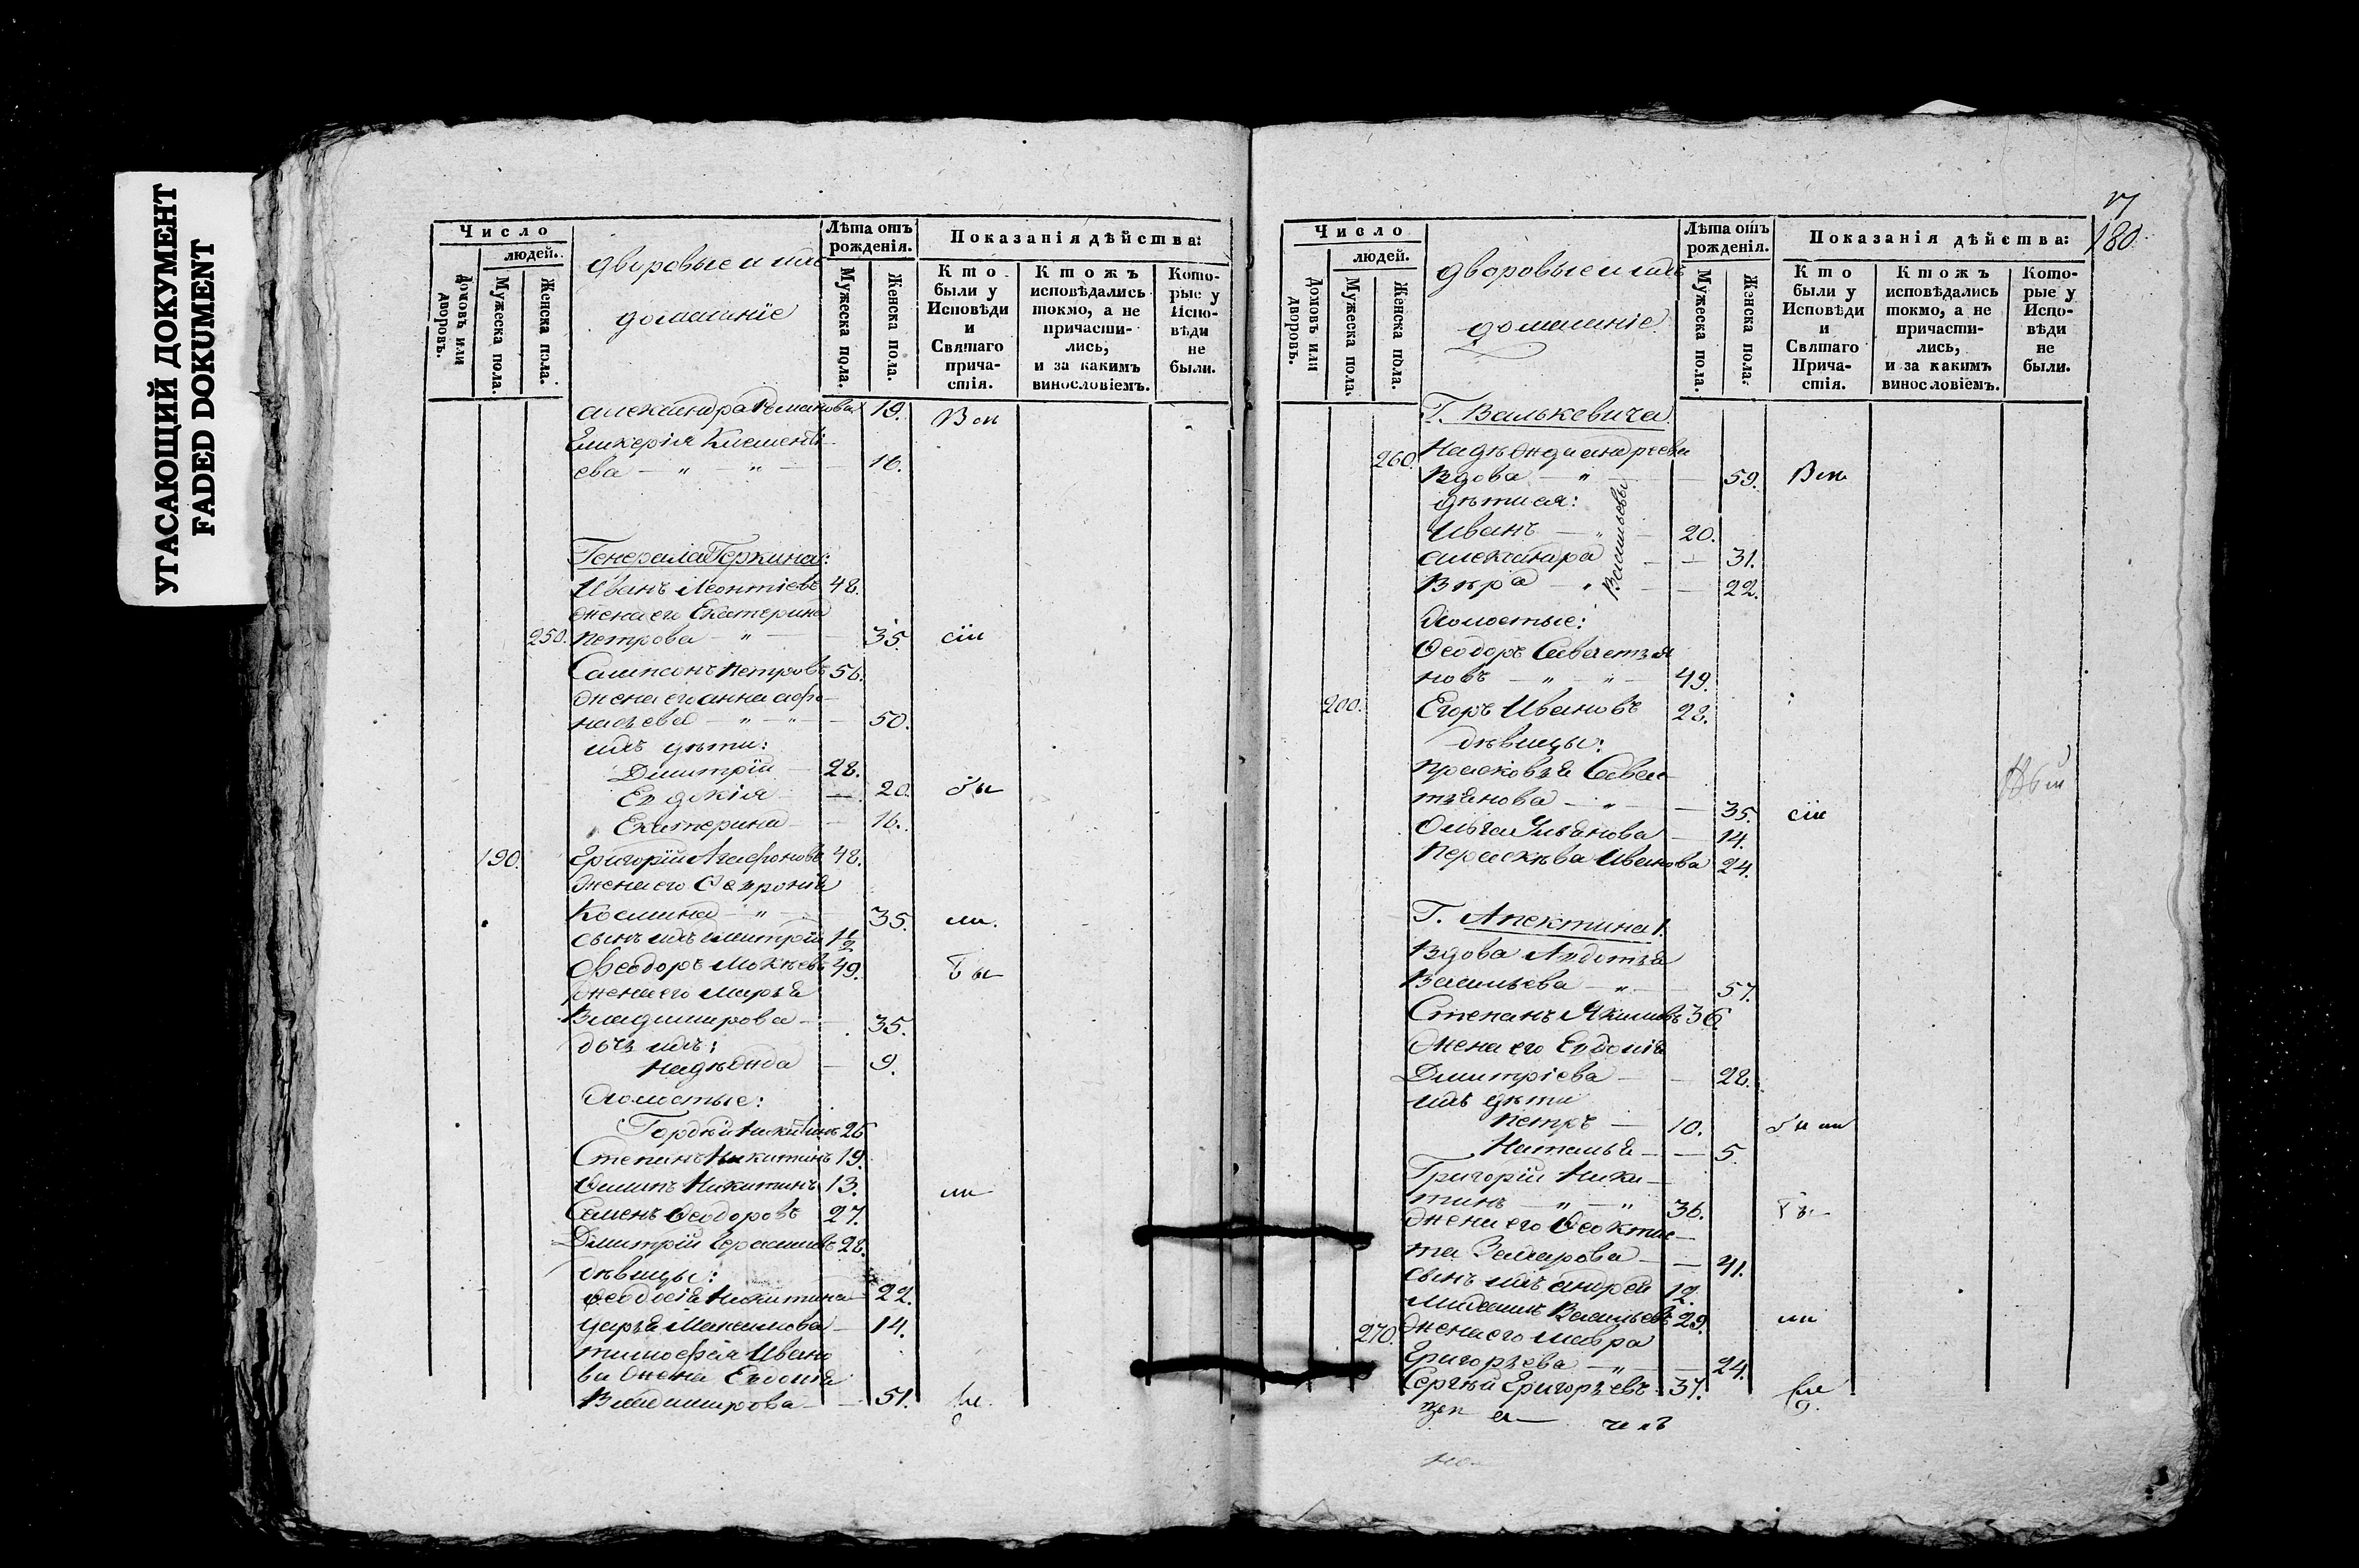 УГАСАЮЩИЙ ДОКУМЕНТ
FADED DOKUMENT
Число
людей.
Домовъ или дворовъ.
Мужеска пола.
Женска пола.
дворовые и ихъ
домашніе
Лѣта отъ рожденія.
Мужеска пола.
Женска пола.
Показанія дѣйства:
Кто были у Исповѣди и Святаго причастія.
Ктожъ исповѣдались токмо, а не причастились, и за какимъ винословіемъ.
Которые у Исповѣди не были.
Александра Романова 19.
Гликерія Клементі-
ева — " — " — 16.
Генерала Геркина:
Иванъ Леонтіевъ 48.
жена его Екатерина
250. Петрова — " — 35. сіи
Сампсонъ Петровъ 56.
жена его Анна Афа-
насьева — " — " — 50.
ихъ дѣти:
Димитрій — 28.
Евдокія — 20.
Екатерина — 16.
190. Григорій Агафоновъ 48.
жена его Февронія
Космина — " — 35.
сынъ ихъ Димитрій 1 1/2
Феодоръ Мокѣевъ 49.
жена его Марья
Владимирова — 35.
дочь ихъ:
Надежда — 9.
Холостые:
Гордѣй Никитинъ 26
Степанъ Никитинъ 19.
Филипъ Никитинъ 13.
Семенъ Феодоровъ 27.
Димитрій Герасимовъ 28.
дѣвицы:
Феодосія Никитина 22.
Дарья Максимова — 14.
Тимофея Ивано
ва жена Евдокія
Владимирова — 51.
180
Число
людей.
Домовъ или дворовъ.
Мужеска пола.
Женска пола.
дворовые и ихъ
домашніе
Лѣта отъ рожденія.
Мужеска пола.
Женска пола.
Показанія дѣйства:
Кто были у Исповѣди и Святаго Причастія.
Ктожъ исповѣдались токмо, а не причастились, и за какимъ винословіемъ.
Которые у Исповѣди не были.
Г. Валькевича
260. Надежда Андреева
Вдова — " — 59.
дѣти ея:
Иванъ — " — 20.
Александра — — 31.
Вѣра — " — 22.
Васильевы
Холостые:
Феодоръ Савастья
новъ — " — " — 49.
200. Егоръ Ивановъ 28.
дѣвицы:
Прасковья Савас-
тьянова — " — 35. сіи
Ольга Ульянова — 14.
Параскева Иванова 24.
Г. Апехтина 1.
Вдова Авдотья
Васильева — " — 57.
Степанъ Якимовъ 36.
жена его Евдокія
Димитріева — — 28.
ихъ дѣти
Петръ — 10.
Наталья — — 5.
Григорій Ники-
тинъ — " — " 36.
жена его Феоктис-
та Захарова — — 41.
сынъ ихъ Андрей 12.
Михаилъ Васильевъ 29.
270. жена его Мавра
Григорьева — " — 24.
Сергѣй Григорьевъ 37.